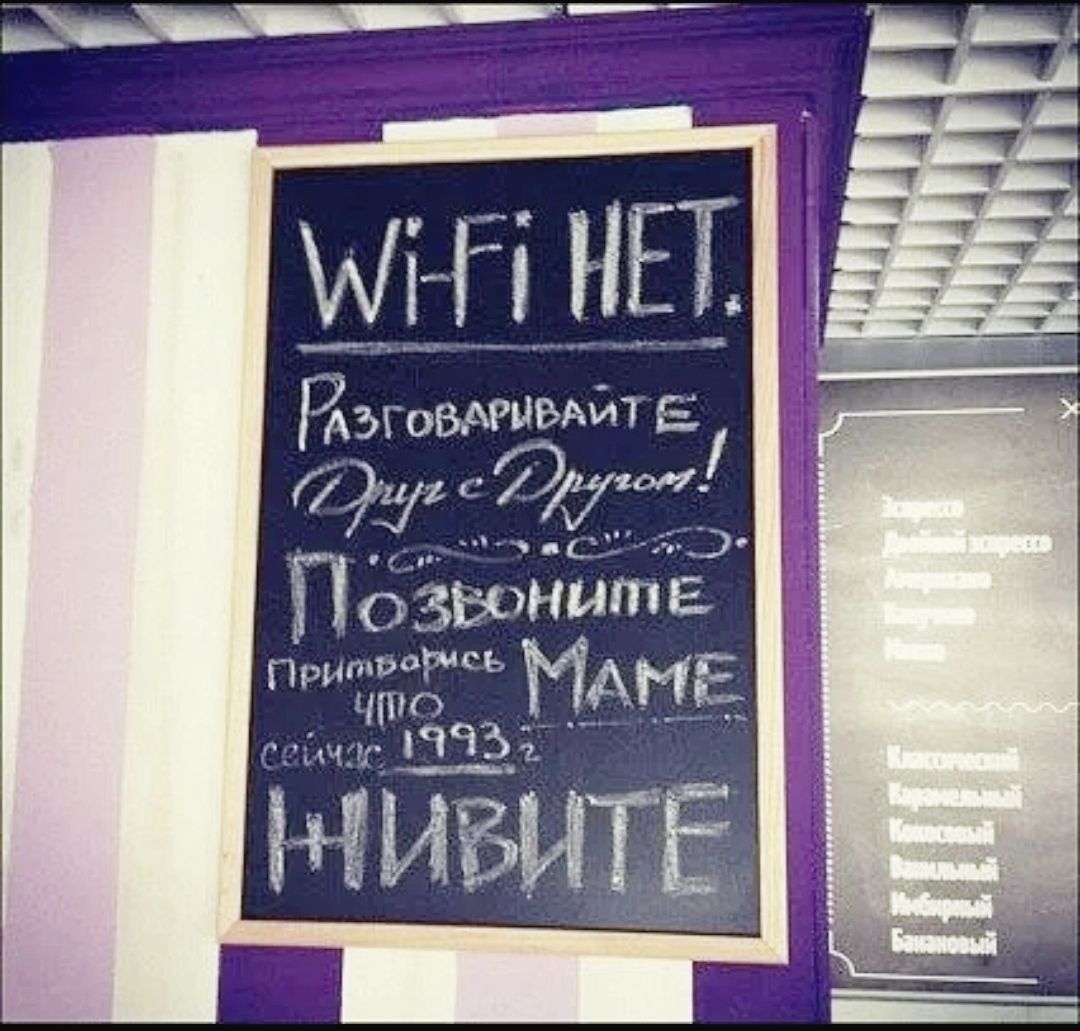 Wi-Fi НЕТ.
РАЗГОВАРИВАЙТЕ
Друг с Другом!
ПОЗВОНИТЕ
Притворись МАМЕ
что
сейчас 1993 г
ЖИВИТЕ
Эспрессо
Двойной эспрессо
Американо
Капучино
Мокко
Классический
Карамельный
Кокосовый
Ванильный
Имбирный
Банановый